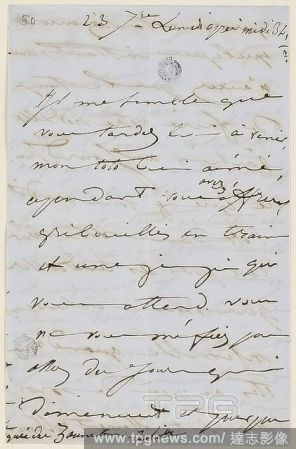 23 7bre Lundi après midi 3h
Il me semble que
vous tardez bien à venir
mon toto bien aimé
cependant vous avez d'affreux
gribouillis en train
et une Juju qui
vous attend. vous
ne vous méfiez pas
assez du jour qui
diminuent et
TPG
www.tpgimages.com 達志影像